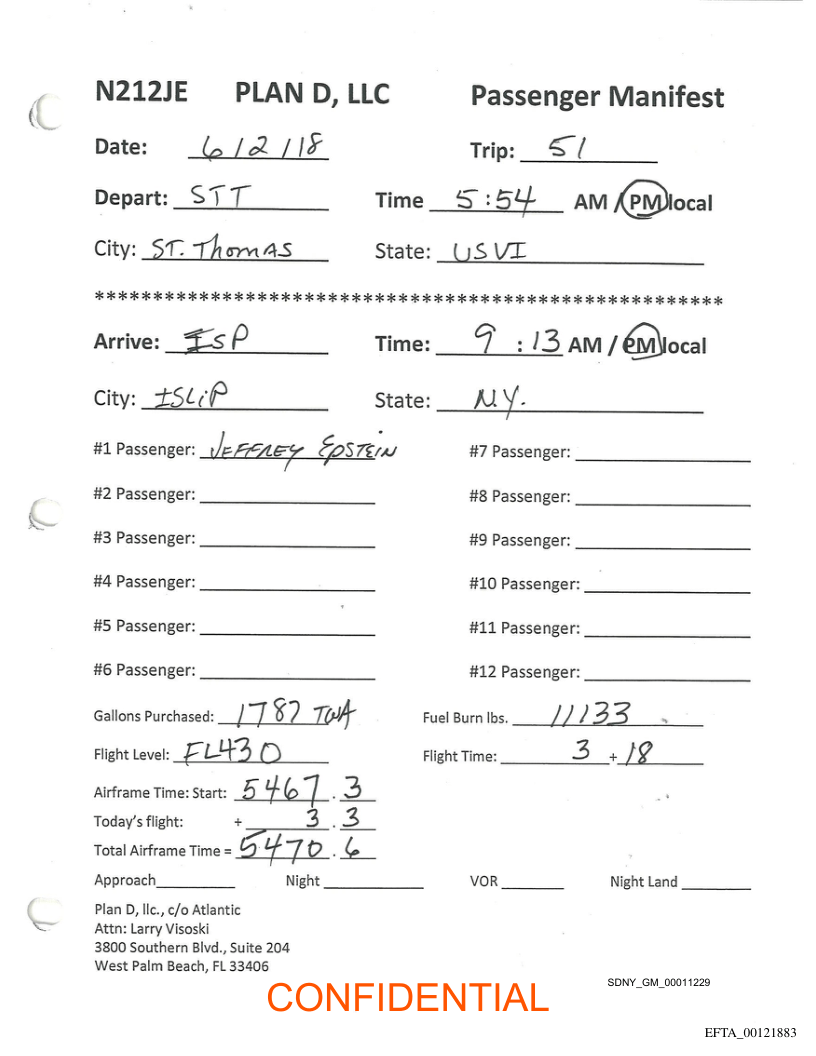 N212JE PLAN D, LLC Passenger Manifest
Date: 6/2/18 Trip: 51
Depart: STT Time 5:54 AM / PM local
City: ST. Thomas State: USVI
*******************************************************
Arrive: ISP Time: 9:13 AM / PM local
City: ISLiP State: N.Y.
#1 Passenger: JEFFREY EPSTEIN #7 Passenger:
#2 Passenger: #8 Passenger:
#3 Passenger: #9 Passenger:
#4 Passenger: #10 Passenger:
#5 Passenger: #11 Passenger:
#6 Passenger: #12 Passenger:
Gallons Purchased: 1787 TWA Fuel Burn lbs. 11133
Flight Level: FL430 Flight Time: 3 + 18
Airframe Time: Start: 5467.3
Today's flight: + 3.3
Total Airframe Time = 5470.6
Approach Night VOR Night Land
Plan D, llc., c/o Atlantic
Attn: Larry Visoski
3800 Southern Blvd., Suite 204
West Palm Beach, FL 33406
SDNY_GM_00011229
CONFIDENTIAL
EFTA_00121883